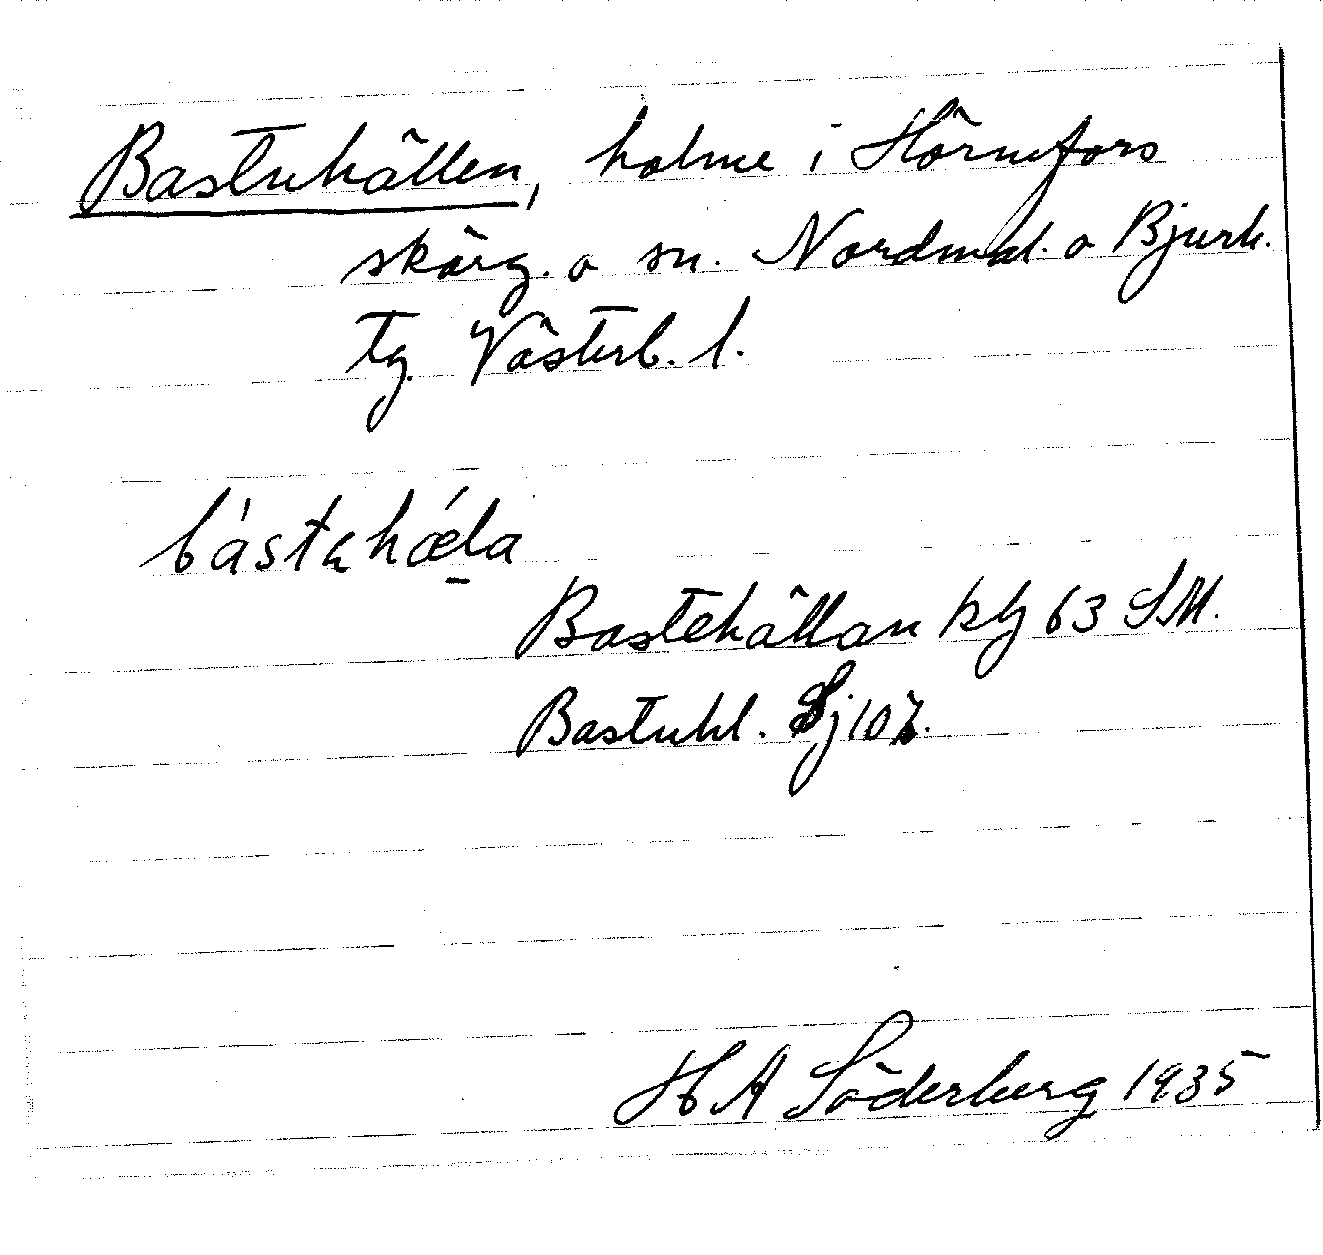 Bastuhällen, holme i Hörnefors
skärg. o sn. Nordmal. o Bjurh.
tg. Västerb. l.
bástahǽla
Bastehällan blj 63 SM.
Bastuhl. Sj 107.
H A Söderberg 1935